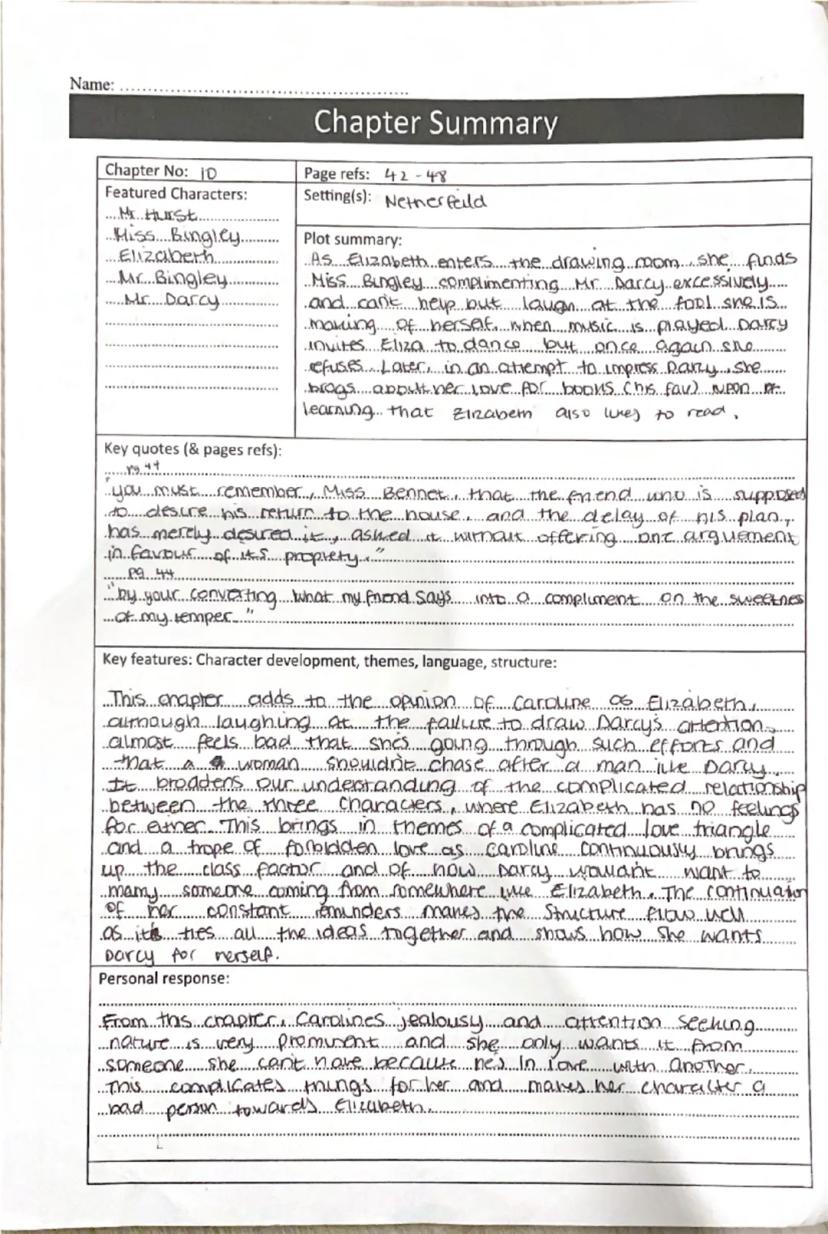 Name:
Chapter Summary
Chapter No: 10
Page refs: 42 - 48
Featured Characters:
Mr. Hurst
Miss Bingley
Elizabeth
Mr. Bingley
Mr. Darcy
Setting(s): Netherfeild
Plot summary:
As Elizabeth enters the drawing room, she finds
Miss Bingley complimenting Mr Darcy excessively
and can't help but laugh at the fool she is
making of herself. when music is played Darcy
invites Eliza to dance but once again she
refuses. Later, in an attempt to impress Darcy, she
brags about her love for books (his fav) upon
learning that Elizabeth also likes to read.
Key quotes (& pages refs):
pg 44
"you must remember, Miss Bennet, that the friend who is supposed
to desire his return to the house, and the delay of his plan,
has merely desired it, asked it without offering one arguement
in favour of it.s propriety."
pg. 44
"by your converting what my friend says into a compliment on the sweetness
of my temper"
Key features: Character development, themes, language, structure:
This chapter adds to the opinion of Caroline as Elizabeth,
although laughing at the failure to draw Darcy's attention,
almost feels bad that she's going through such efforts and
that a woman shouldn't chase after a man like Darcy.
It broadens our understanding of the complicated relationship
between the three characters, where Elizabeth has no feelings
for either. This brings in themes of a complicated love triangle
and a trope of forbidden love as Caroline continuously brings
up the class factor and of how Darcy wouldnt want to
marry someone coming from somewhere like Elizabeth. The continuation
of her constant reminders makes the structure flow well
as it ties all the ideas together and shows how she wants
Darcy for herself.
Personal response:
From this chapter, Carolines jealousy and attention seeking
nature is very prominent and she only wants it from
someone she can't have because hes in love with another.
This complicates things for her and makes her character a
bad person towards Elizabeth.